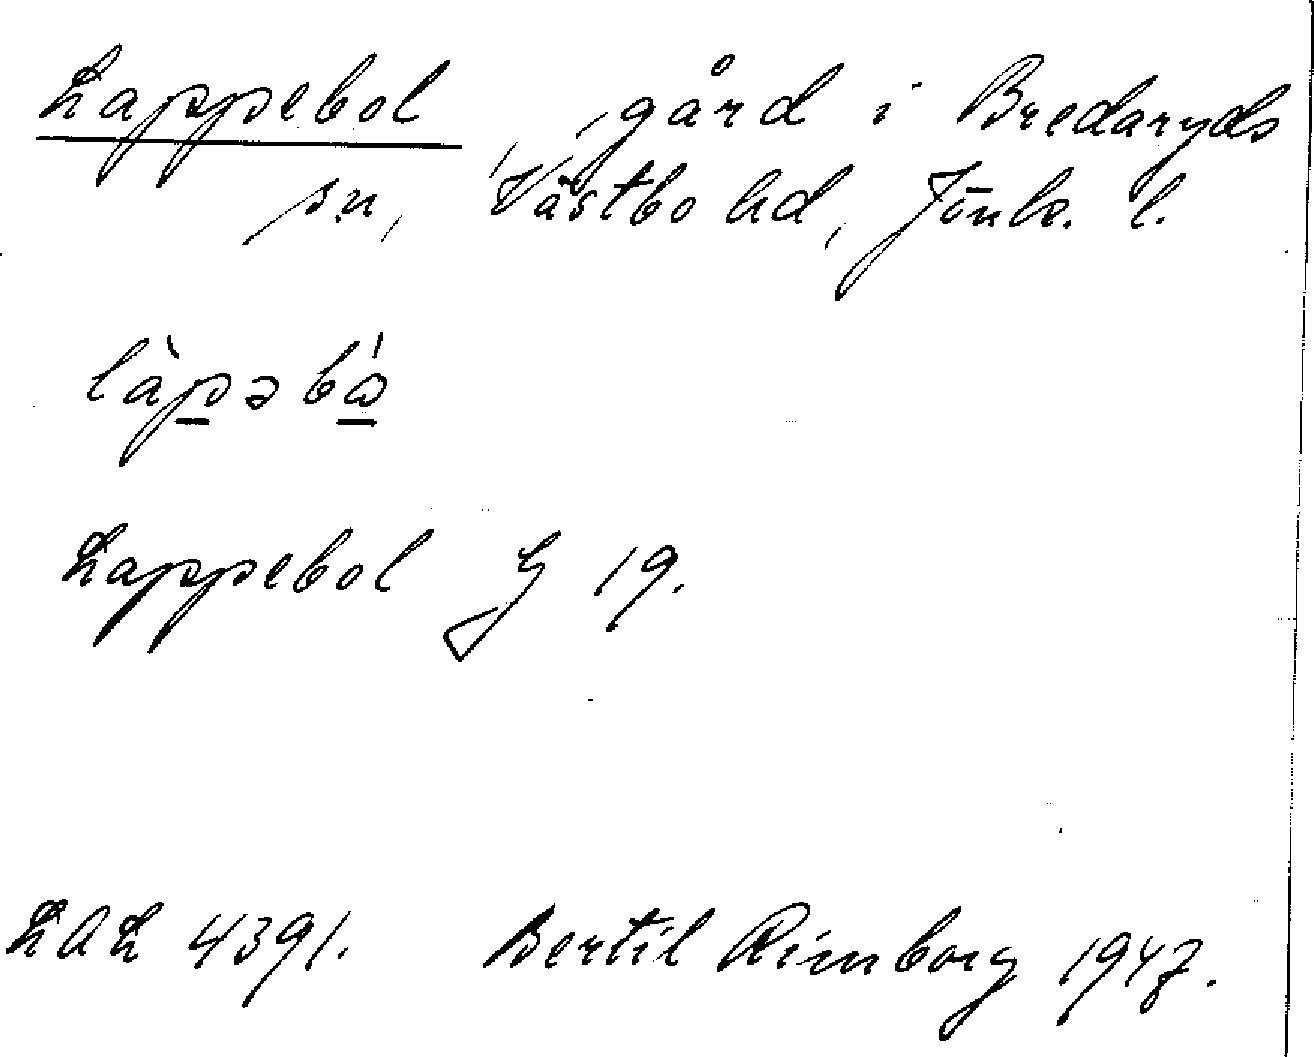 Lappebol, gård i Bredaryds
sn, Västbo hd, Jönk. l.
làpəbá
Lappebol J 19.
LAL 4391. Bertil Rimborg 1947.